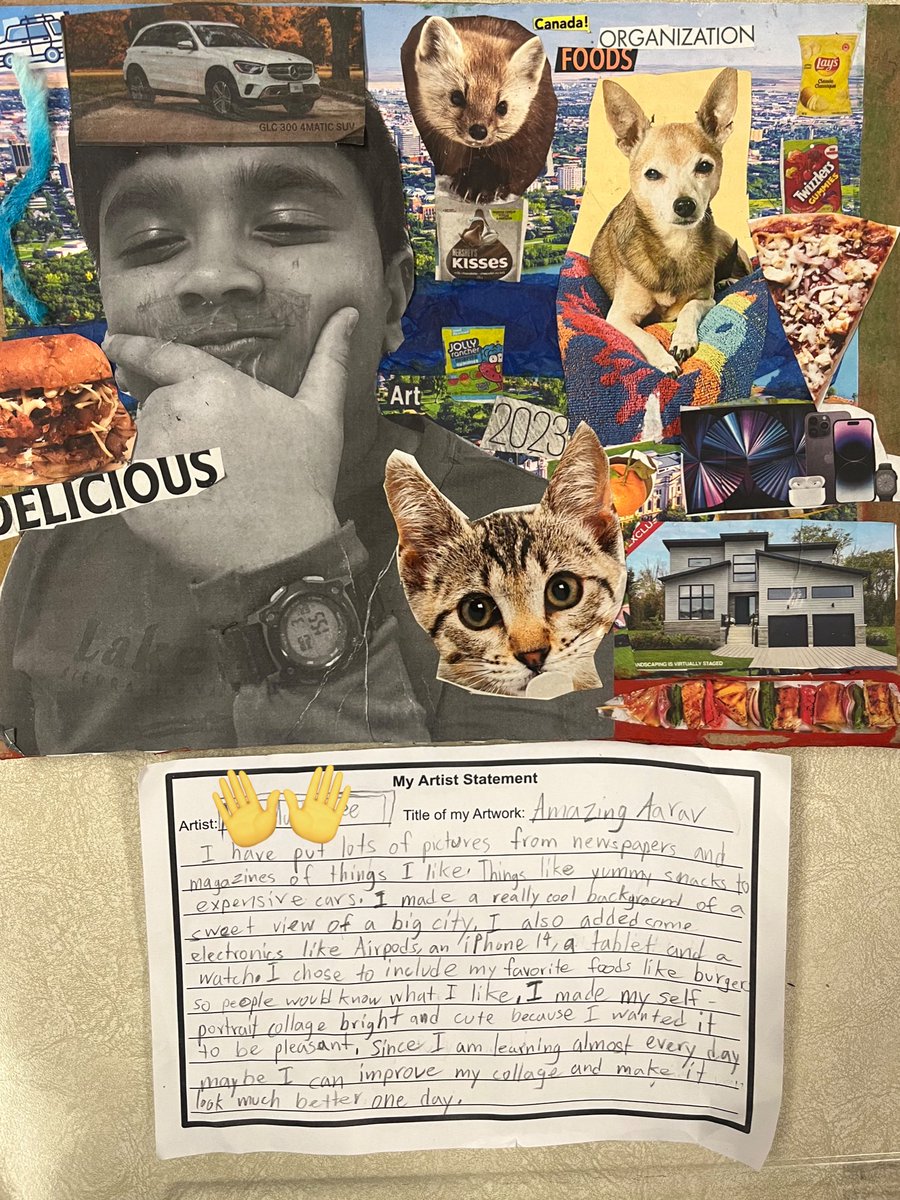 Canada!
ORGANIZATION
FOODS
Lay's
Classic
Classiques
GLC 300 4MATIC SUV
Twizzlers
GUMMIES
HERSHEY'S
KISSES
JOLLY
RANCHER
GUMMIES
Art
2023
DELICIOUS
EXCLUS
LANDSCAPING IS VIRTUALLY STAGED
My Artist Statement
Artist: Title of my Artwork: Amazing Aarav
I have put lots of pictures from newspapers and
magazines of things I like. Things like yummy snacks to
expensive cars. I made a really cool background of a
sweet view of a big city. I also added some
electronics like Airpods, an iPhone 14, a tablet and a
watch. I chose to include my favorite foods like burger
so people would know what I like. I made my self-
portrait collage bright and cute because I wanted it
to be pleasant. Since I am learning almost every day
maybe I can improve my collage and make it
look much better one day.